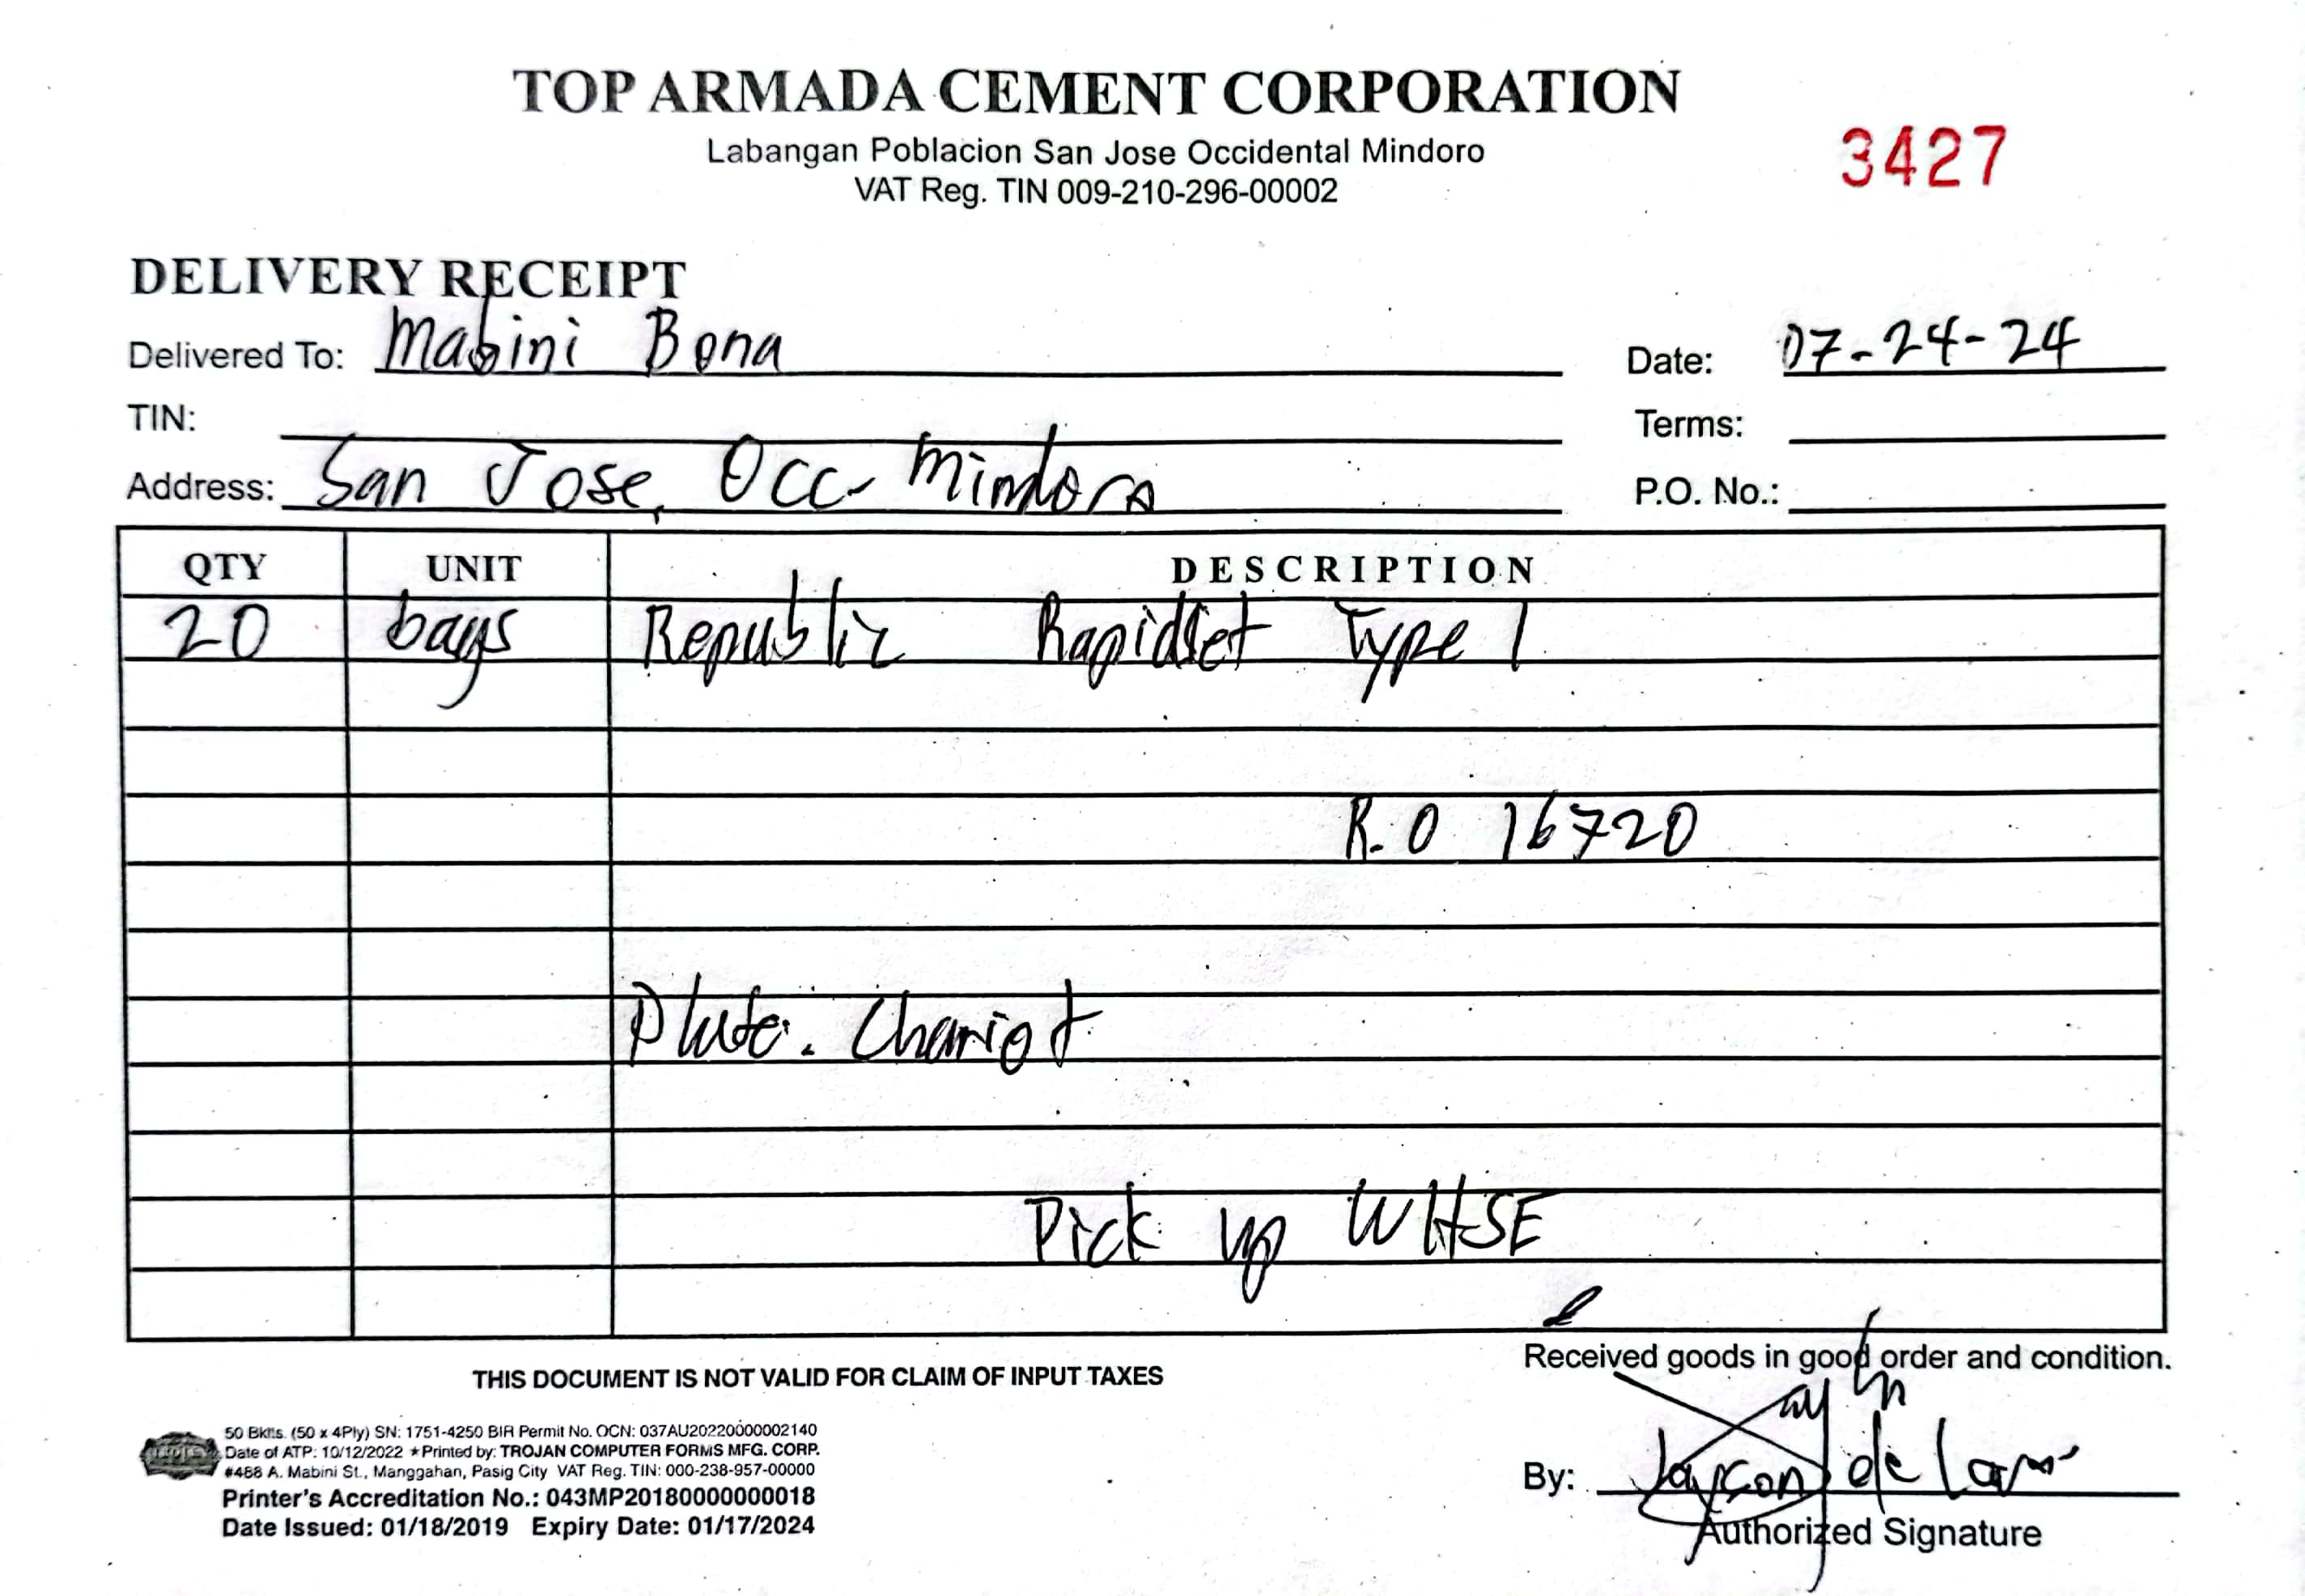 TOP ARMADA CEMENT CORPORATION
Labangan Poblacion San Jose Occidental Mindoro
VAT Reg. TIN 009-210-296-00002
3427
DELIVERY RECEIPT
Delivered To: Mabini Bona
Date: 07-24-24
TIN:
Terms:
Address: San Jose, Occ. Mindoro
P.O. No.:
QTY UNIT DESCRIPTION
20 bags Republic Rapidset Type 1
R.O 16720
Plate: Chariot
Pick up WHSE
Received goods in good order and condition.
THIS DOCUMENT IS NOT VALID FOR CLAIM OF INPUT TAXES
50 Bklts. (50 x 4Ply) SN: 1751-4250 BIR Permit No. OCN: 037AU20220000002140
Date of ATP: 10/12/2022 ★ Printed by: TROJAN COMPUTER FORMS MFG. CORP.
#468 A. Mabini St., Manggahan, Pasig City VAT Reg. TIN: 000-238-957-00000
Printer's Accreditation No.: 043MP20180000000018
Date Issued: 01/18/2019 Expiry Date: 01/17/2024
By: de
Authorized Signature